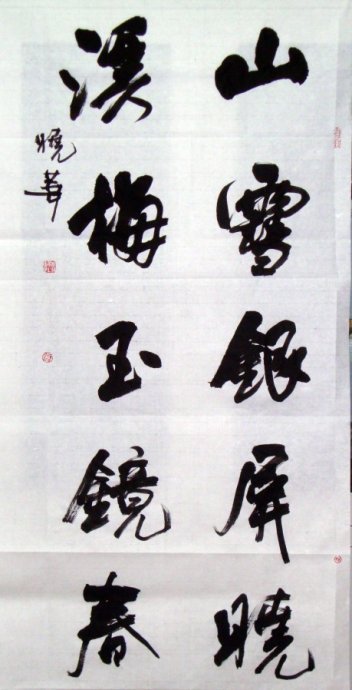 山雪銀屏曉
溪梅玉鏡春
曉華